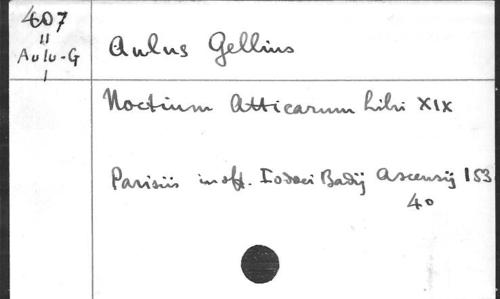 407
"
Aulu-G
ı
Aulus Gellius
Noctium Atticarum Libri XIX
Parisiis in off. Iodoci Badij Ascensij 153
40